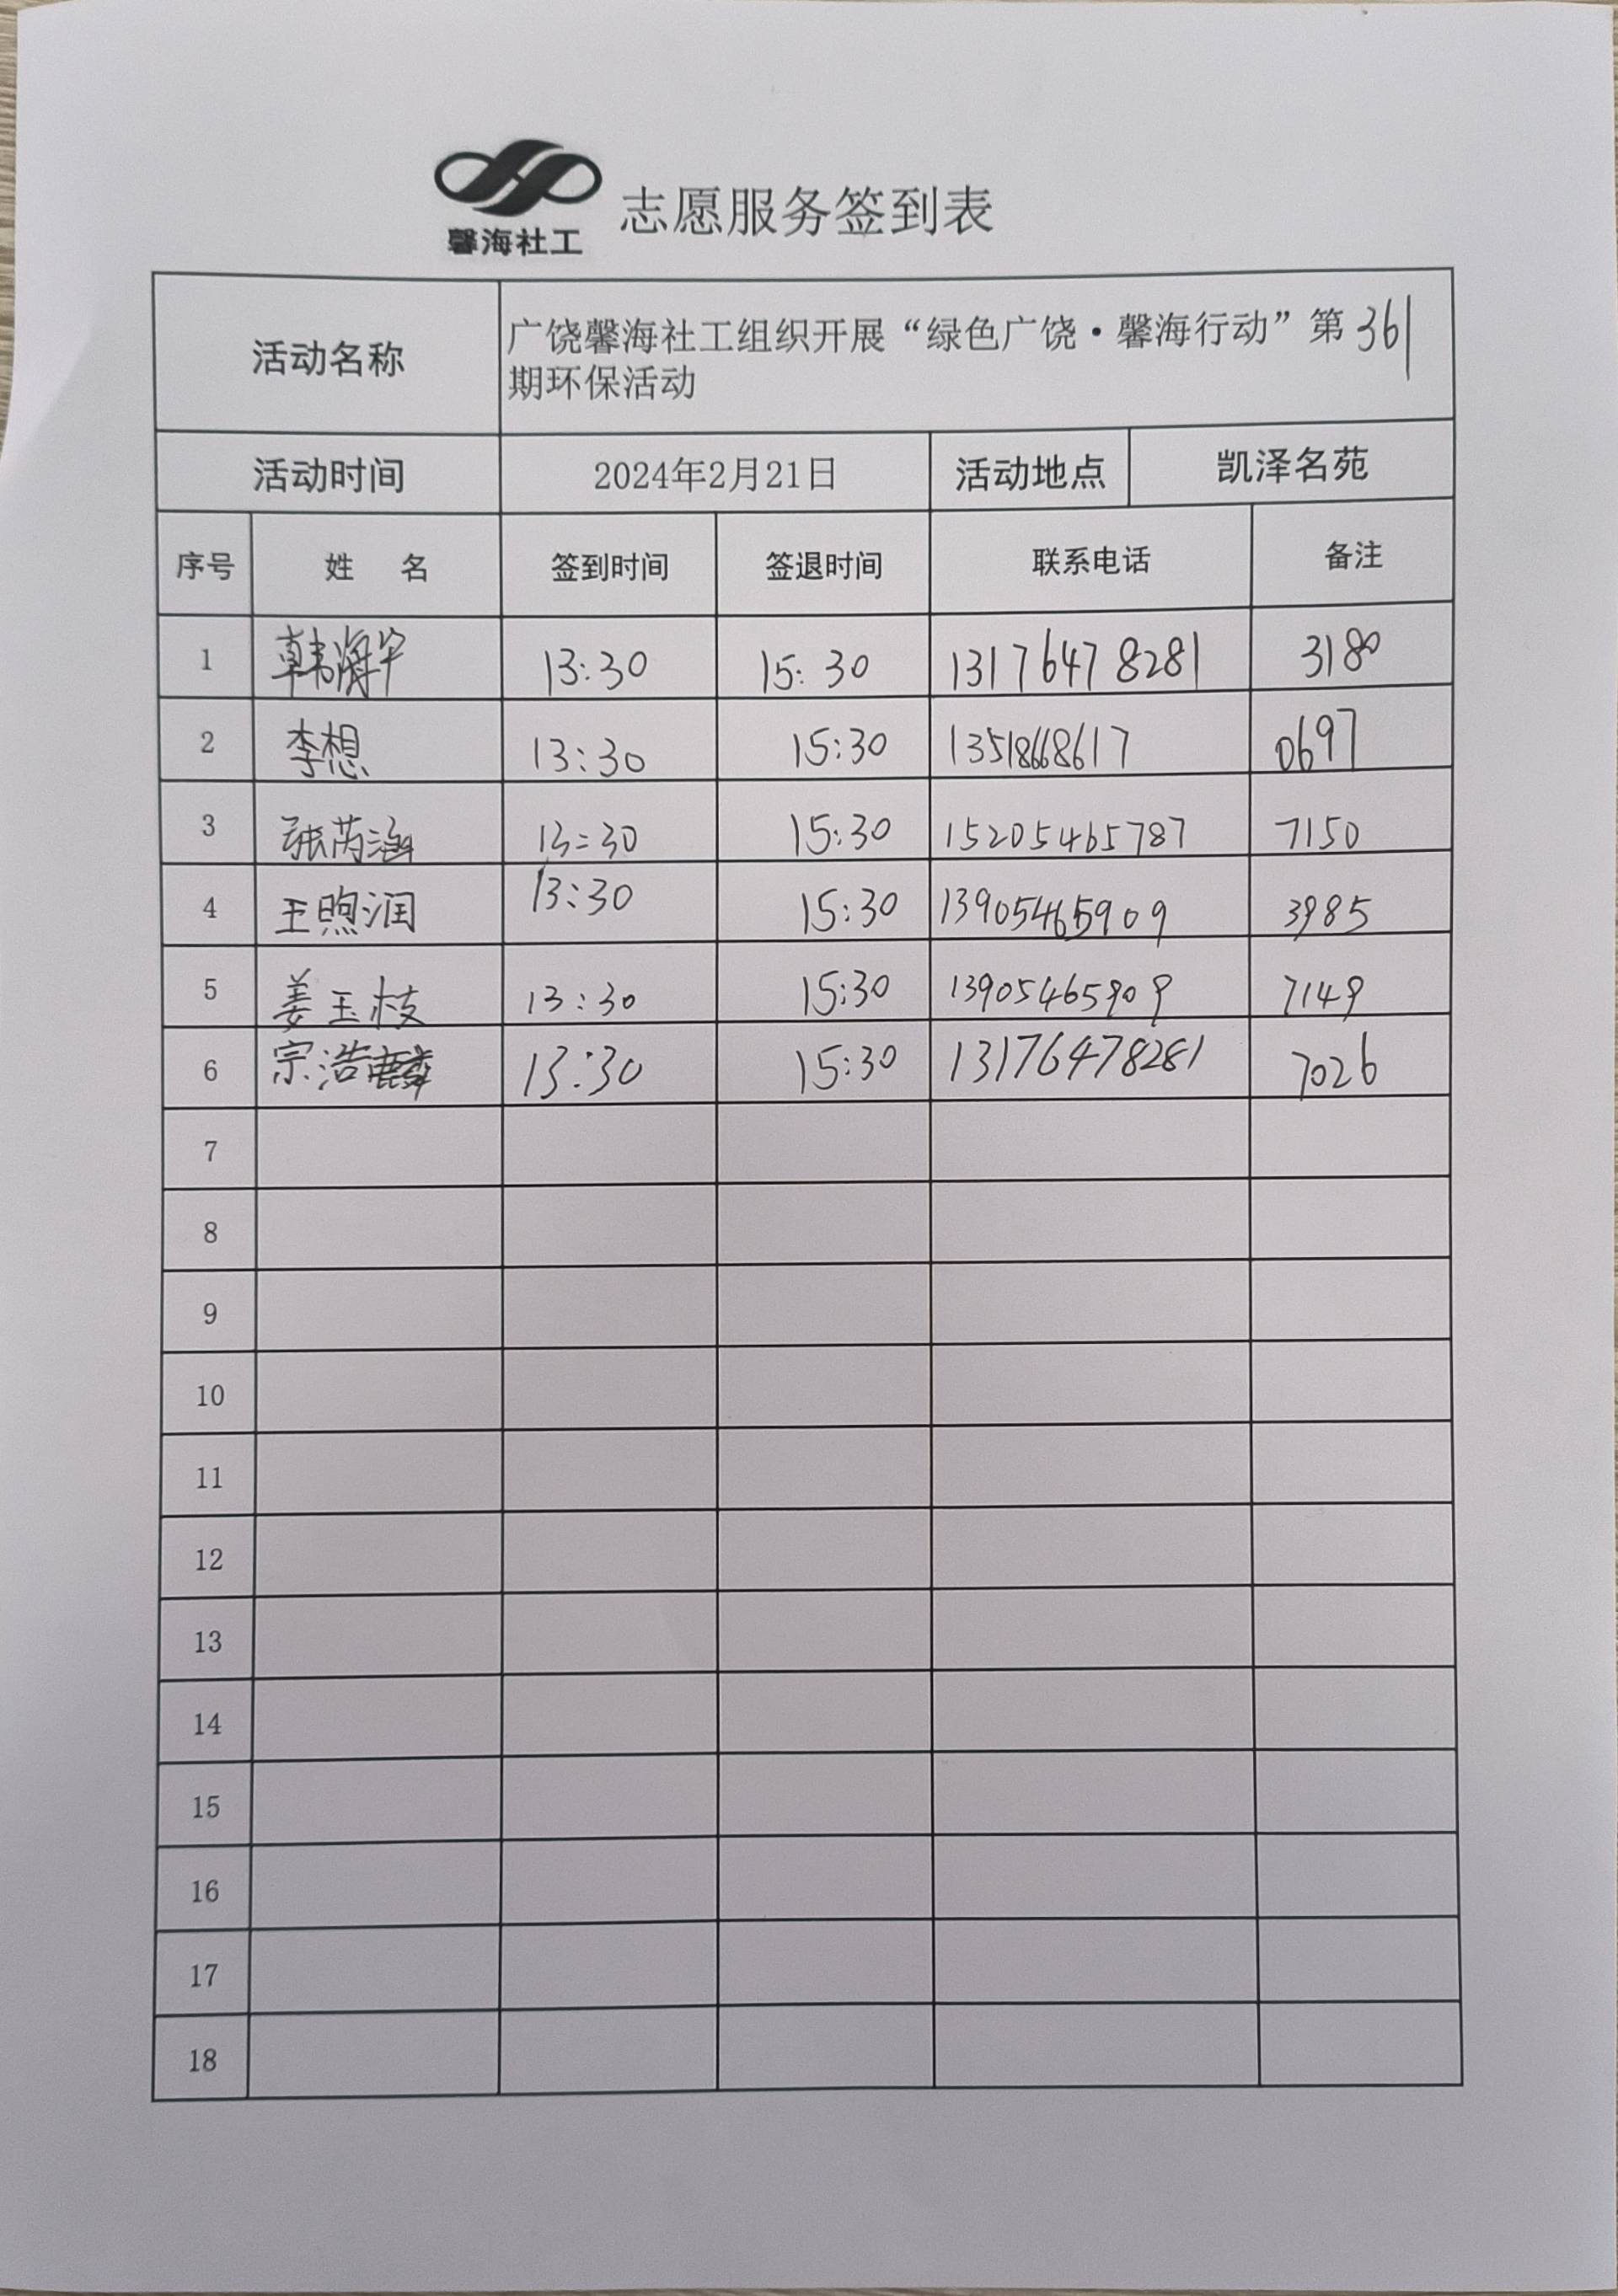 馨海社工
志愿服务签到表
活动名称 广饶馨海社工组织开展“绿色广饶·馨海行动”第361
期环保活动
活动时间 2024年2月21日 活动地点 凯泽名苑
序号 姓 名 签到时间 签退时间 联系电话 备注
1 韩海宇 13:30 15:30 13176478281 3180
2 李想 13:30 15:30 13518668617 0697
3 张芮涵 13:30 15:30 15205465787 7150
4 王煦润 13:30 15:30 13905465909 3985
5 姜玉枝 13:30 15:30 13905465909 7149
6 宗浩麟 13:30 15:30 13176478281 7026
7
8
9
10
11
12
13
14
15
16
17
18